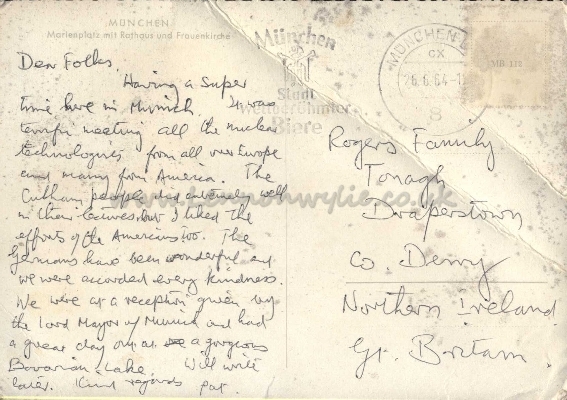 MÜNCHEN
Marienplatz mit Rathaus und Frauenkirche
München
Stadt
weltberühmter
Biere
MÜNCHEN
cx
26.6.64-1
8
MB 112
Dear Folks,
Having a super
time here in Munich It was
terrific meeting all the nuclear
technologists from all over Europe
and many from America. The
Culham people did extremely well
in their lectures but I liked the
efforts of the Americans too. The
Germans have been wonderful and
we were accorded every kindness.
We were at a reception given by
the Lord Mayor of Munich and had
a great day out at a gorgeous
Bavarian Lake. Will write
later. Kind regards Pat.
Rogers Family
Tonagh
Draperstown
Co. Derry
Northern Ireland
Gt. Britain.